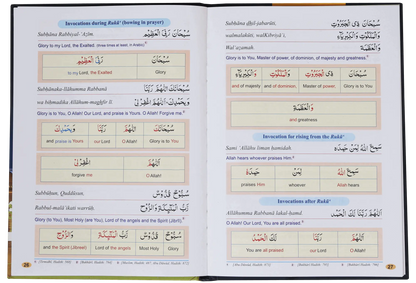 Invocations during Rukū‘ (bowing in prayer)
Subḥāna Rabbiyal-‘Aẓīm. سُبْحَانَ رَبِّيَ الْعَظِيمِ
Glory to my Lord, the Exalted
رَبِّيَ الْعَظِيمِ سُبْحَانَ
to my Lord, the Exalted Glory
Subḥānaka-llāhumma Rabbanā سُبْحَانَكَ اللَّهُمَّ رَبَّنَا
wa bihamdika Allāhum-maghfir-lī وَبِحَمْدِكَ اللَّهُمَّ اغْفِرْ لِي
Glory is to You, O Allah! Our Lord, and praise is Yours. O Allah! Forgive me.
وَبِحَمْدِكَ رَبَّنَا اللَّهُمَّ سُبْحَانَكَ
and praise is Yours our Lord O Allah! Glory is to You
اغْفِرْ لِي اللَّهُمَّ
forgive me O Allah!
Subbūḥun, Quddūsun, سُبُّوحٌ قُدُّوسٌ
Rabbul-malā'ikati warrūḥ. رَبُّ الْمَلَائِكَةِ وَالرُّوحِ
Glory (to You), Most Holy (are You), Lord of the angels and the Spirit (Jibril).
وَالرُّوحِ رَبُّ الْمَلَائِكَةِ قُدُّوسٌ سُبُّوحٌ
and the Spirit (Jibreel) Lord of the angels Most Holy Glory
26
Subḥāna dhil-jabarūti, سُبْحَانَ ذِي الْجَبَرُوتِ
walmalakūti, walKibriyā'i, وَالْمَلَكُوتِ وَالْكِبْرِيَاءِ
Wal‘aẓamah. وَالْعَظَمَةِ
Glory is to You, Master of power, of dominion, of majesty and greatness.
وَالْكِبْرِيَاءِ وَالْمَلَكُوتِ ذِي الْجَبَرُوتِ سُبْحَانَ
and of majesty and of dominion, Master of power, Glory is to You,
وَالْعَظَمَةِ
and greatness
Invocation for rising from the Rukū‘
Sami ‘Allāhu liman ḥamidah سَمِعَ اللَّهُ لِمَنْ حَمِدَهُ
Allah hears whoever praises Him.
حَمِدَهُ لِمَنْ سَمِعَ اللَّهُ
praises Him whoever Allah hears
Invocations after Rukū‘
Allāhumma Rabbanā lakal-ḥamd اللَّهُمَّ رَبَّنَا لَكَ الْحَمْدُ
O Allah! Our Lord, You are all praised.
لَكَ الْحَمْدُ رَبَّنَا اللَّهُمَّ
You are all praised our Lord O Allah!
27